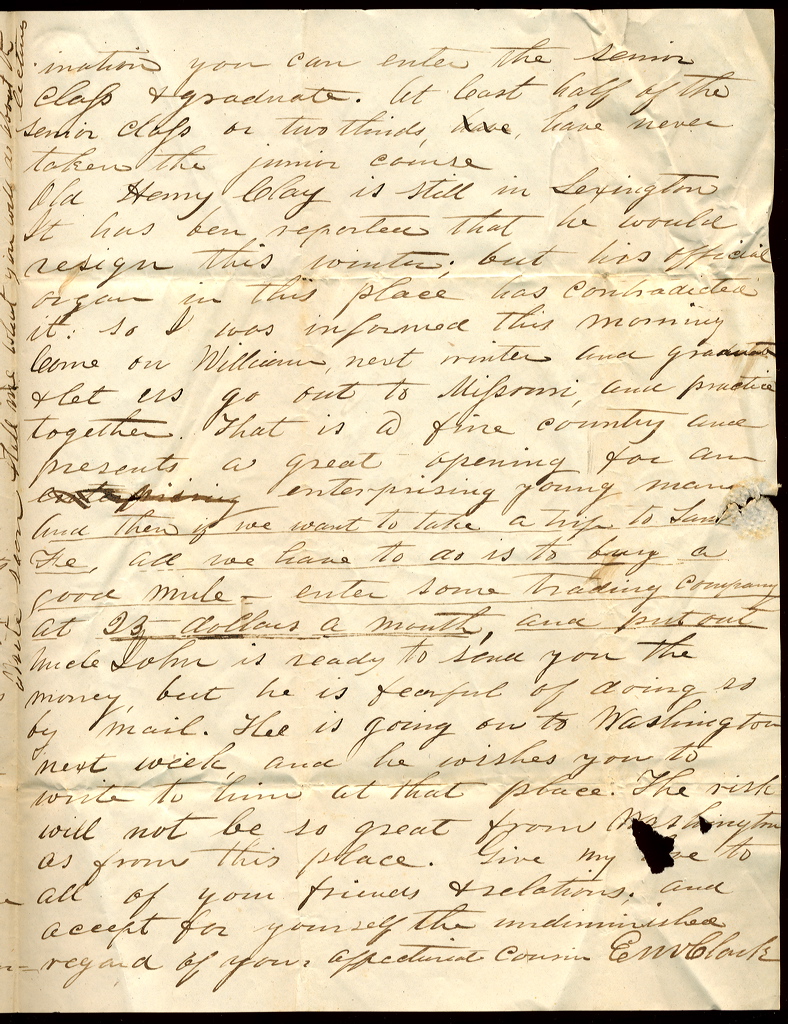 ination you can enter the senior
class & graduate. At least half of the
senior class or two thirds, have, have never
taken the junior course
Old Henry Clay is still in Lexington
It has ben reported that he would
resign this winter; but his official
organ in this place has contradicted
it: so I was informed this morning
Come on William, next winter and graduate
& let us go out to Missouri, and practice
together. That is a fine country and
presents a great opening for an
enterprising enterprising young man
And then if we want to take a trip to Santa
Fe, all we have to do is to buy a
good mule – enter some trading company
at 25 dollars a month, and put out
Uncle John is ready to send you the
money, but he is fearful of doing so
by mail. Hee is going on to Washington
next week, and he wishes you to
write to him at that place. The risk
will not be so great from Washington
as from this place. Give my love to
all of your friends & relations; and
accept for yourself the undiminished
regard of your affectionate cousin E W Clark
Write soon & tell me what you will do about the
lectures